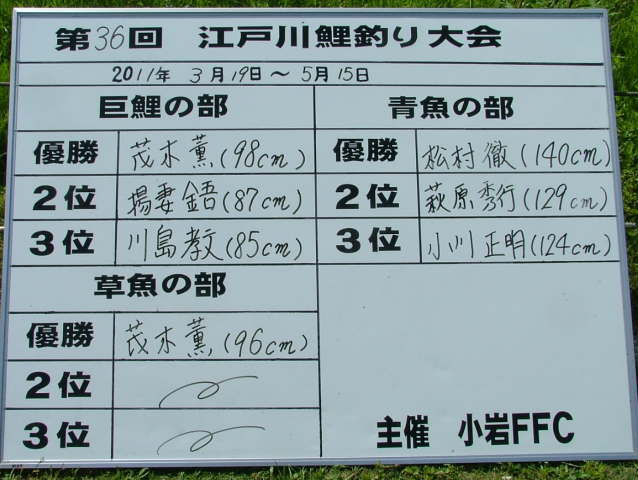 第36回 江戸川鯉釣り大会
2011年 3月19日～5月15日
巨鯉の部
優勝 茂木薫(98cm)
2位 揚妻鋙(87cm)
3位 川島教(85cm)
青魚の部
優勝 松村徹(140cm)
2位 萩原秀行(129cm)
3位 小川正明(124cm)
草魚の部
優勝 茂木薫(96cm)
2位
3位
主催 小岩FFC